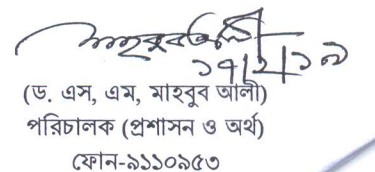 মাহবুব আলী
১৭/২/১৯
(ড. এস, এম, মাহবুব আলী)
পরিচালক (প্রশাসন ও অর্থ)
ফোন-৯১১০৯৫৩